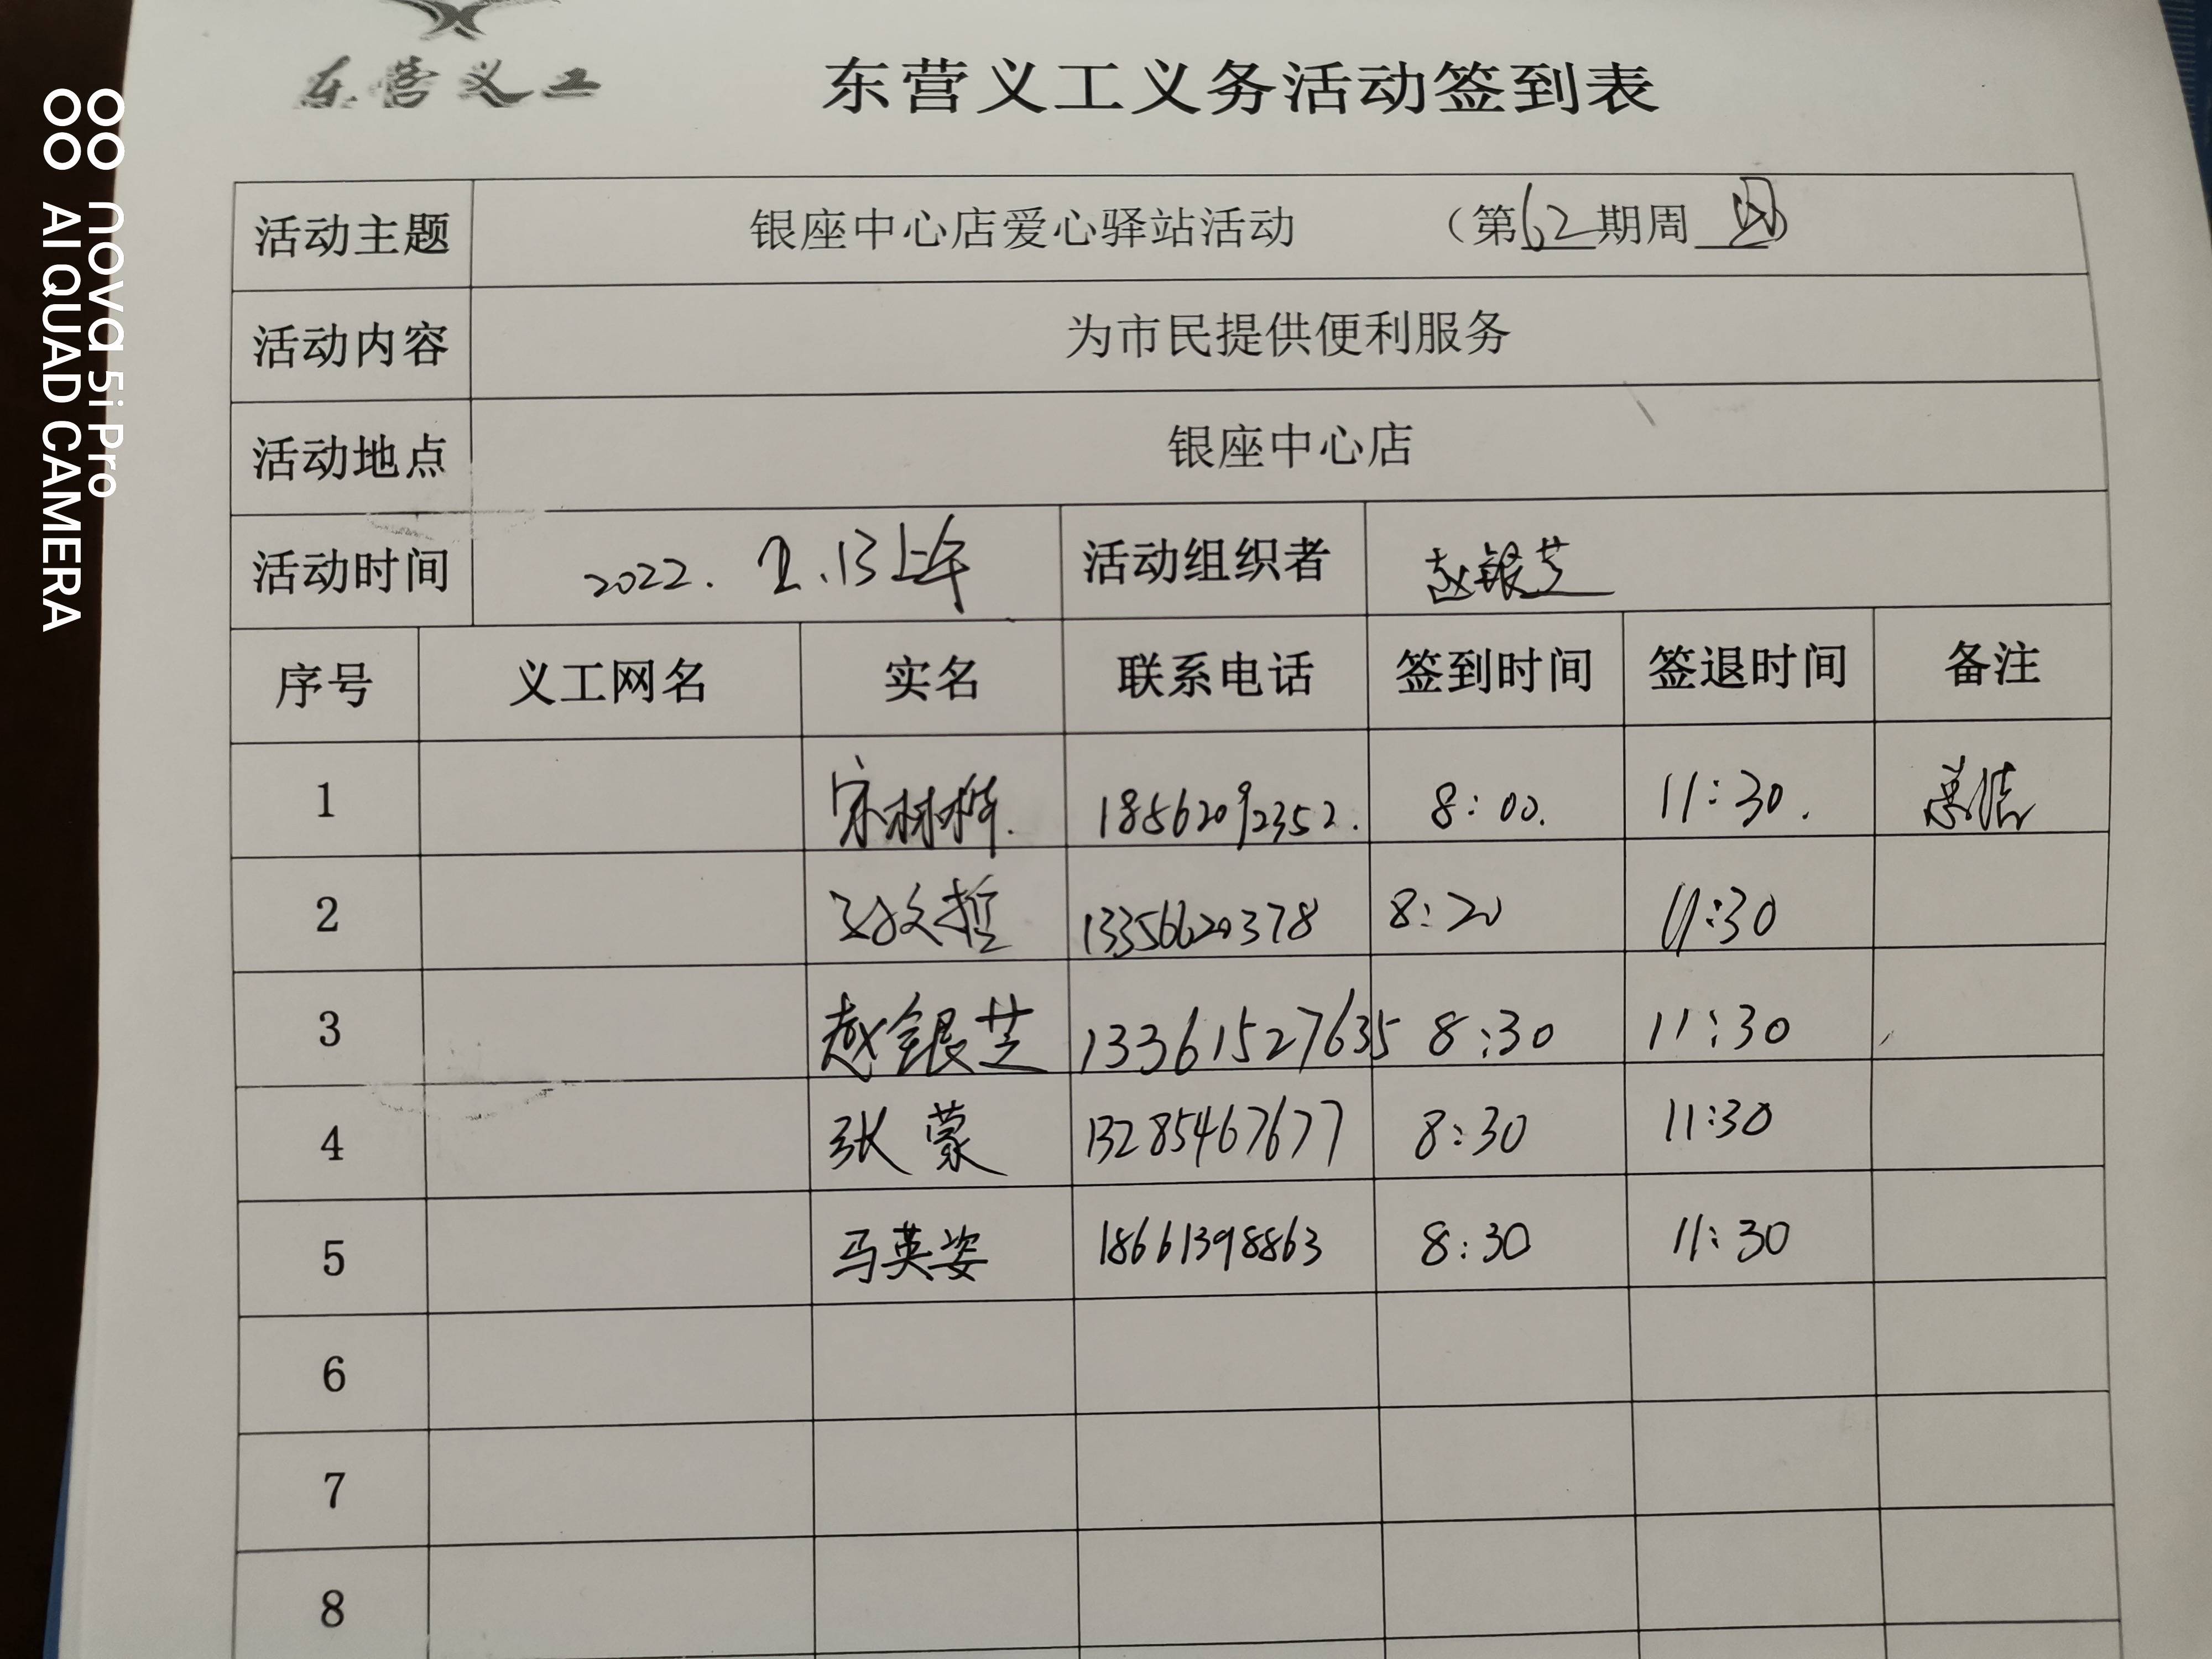 东营义工
东营义工义务活动签到表
活动主题 银座中心店爱心驿站活动 （第62期周 ）
活动内容 为市民提供便利服务
活动地点 银座中心店
活动时间 2022. .13上午 活动组织者 赵银芝
序号 义工网名 实名 联系电话 签到时间 签退时间 备注
1 宋林桦. 18562092352. 8:00. 11:30.
2 13356620378 8:20 11:30
3 赵银芝 13361527635 8:30 11:30
4 张蒙 13285467677 8:30 11:30
5 马英姿 18661398863 8:30 11:30
6
7
8
nova 5i Pro
AI QUAD CAMERA